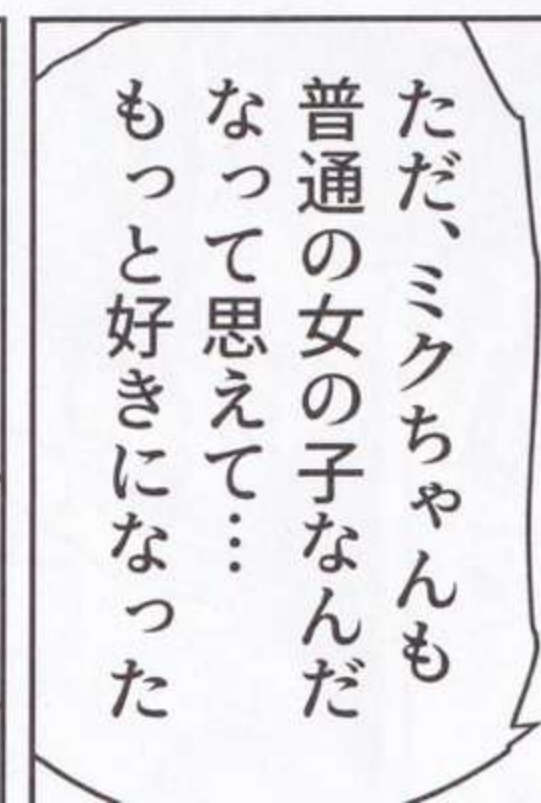 ただ、ミクちゃんも
普通の女の子なんだ
なって思えて…
もっと好きになった